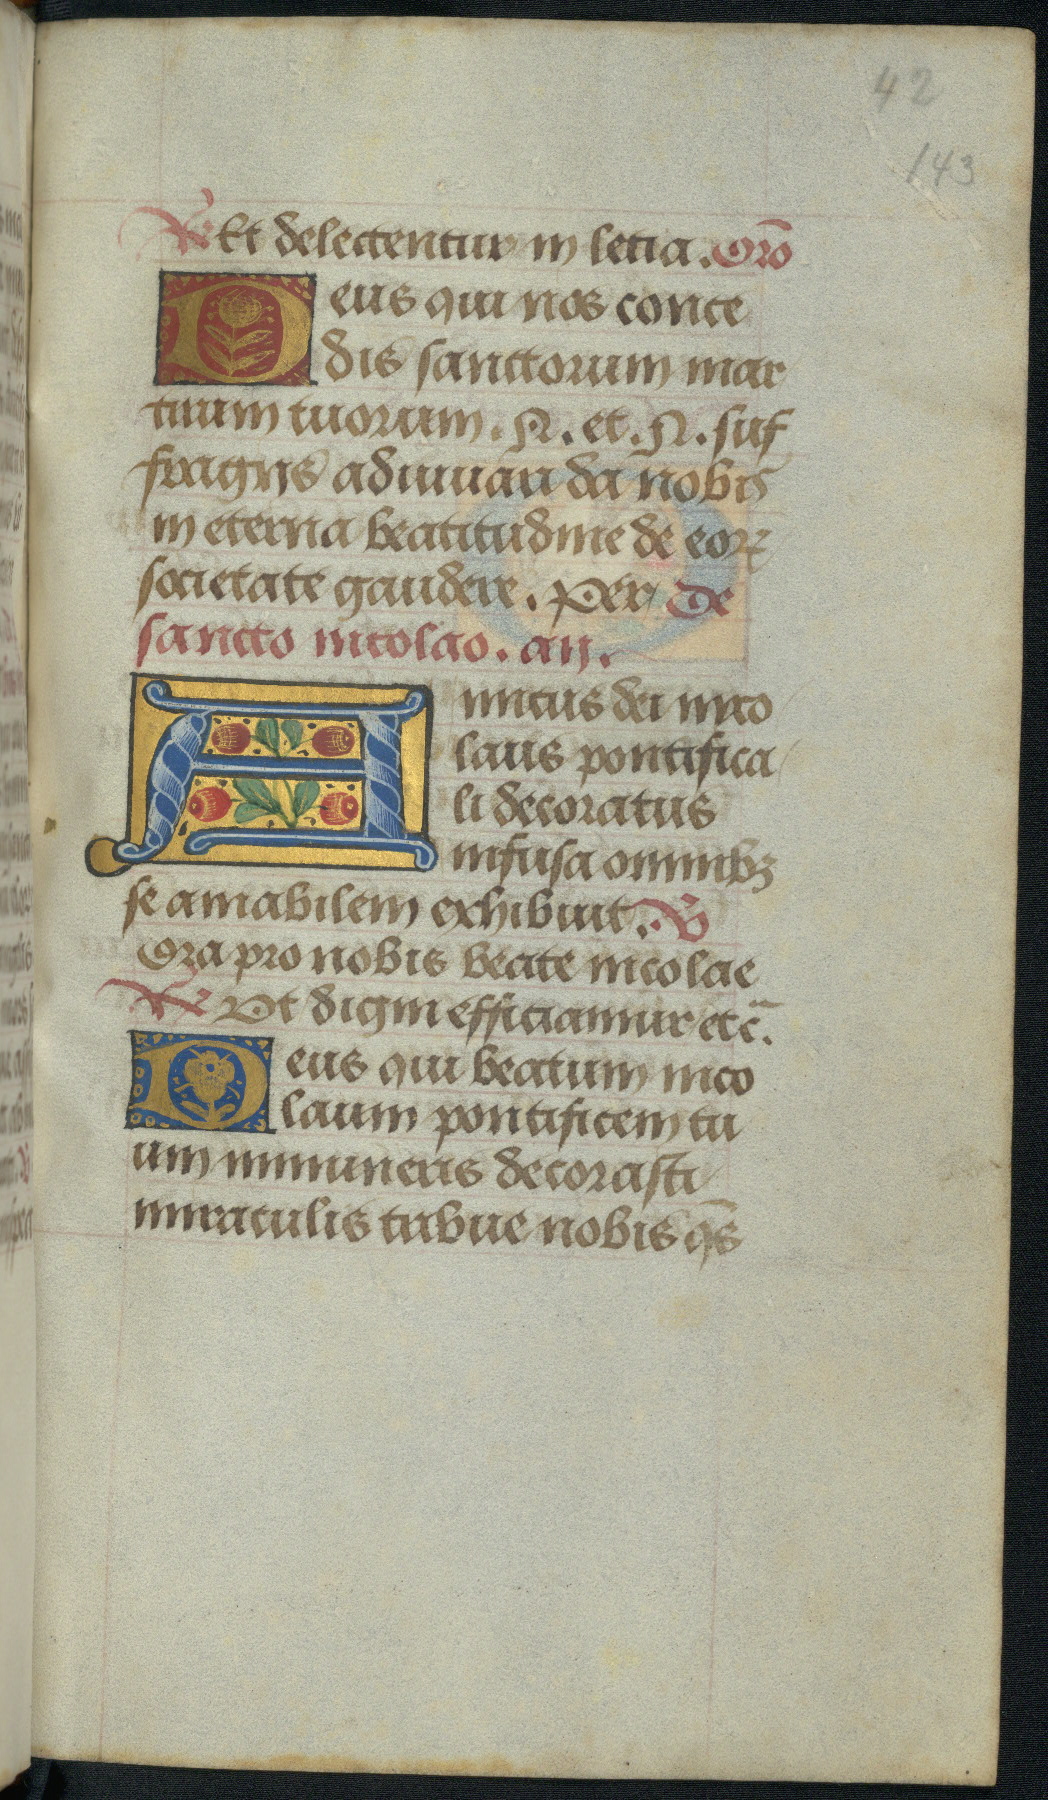 42
143
℟ Et delectentur in leticia. Oro̅
Deus qui nos conce
dis sanctorum mar
tirum tuorum. N. et. N. suf
fragijs adiuuari da nobis
in eterna beatitudine de eoꝝ
societate gaudere. Per De
sancto nicolao. an.
Amicus dei nico
laus pontifica
li decoratus
infusa omnibꝫ
se amabilem exhibuit. ℣
Ora pro nobis beate nicolae
℟ Ut digni efficiamur etc̅.
Deus qui beatum nico
laum pontificem tu
um innumeris decorasti
miraculis tribue nobis qs̅